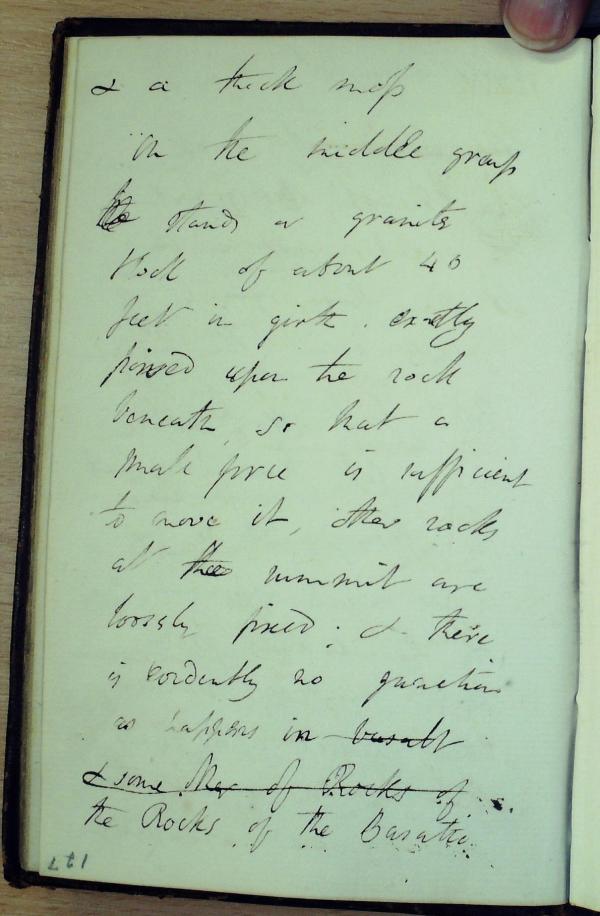 & a thick mass
in the middle group
stands a granite
block of about 40
feet in girth. exactly
poised upon the rock
beneath, so that a
small force is sufficient
to move it, other rocks
at the summit are
loosely fixed; & there
is evidently no junction
as happens in basalt
& some other of Rocks of
the Rocks of the Basaltic